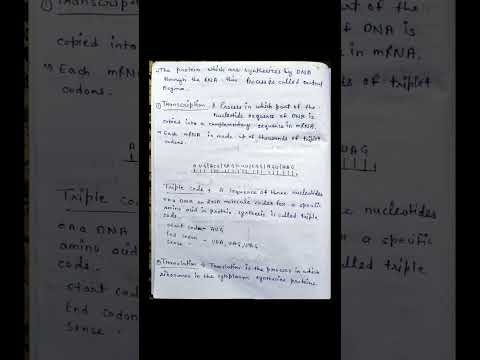 The protein which are synthesizes by DNA
through the RNA this process is called central
Dogma.
① Transcription : A Process in which part of the
Nucleotide sequence of DNA is
copied into a complementary sequence in mRNA.
Each mRNA is made up of thousands of triplet
codons.
Triple code : A sequence of three nucleotides
on a DNA or RNA molecule codes for a specific
amino acid in protein synthesis is called triple
code.
Start codon AUG
End codon
Sense - UGA, UAG,
② Translation : Translation is the process in which
ribosomes in the cytoplasm synthesize proteins.